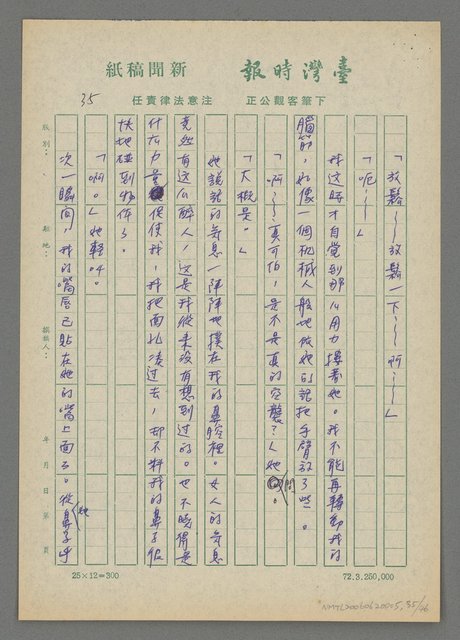 臺灣時報 新聞稿紙
下筆客觀公正 注意法律責任
35
「放鬆～～放鬆一下～～啊～～」
「呃～～」
我這時才自覺到那么用力摟著她。我不能再轉動我的
腦筋，好像一個机械人般地依她的話把手臂放了些。
「啊～～真可怕，是不是真的空襲？」她問。
「大概是。」
她說話的气息一陣陣地撲在我的鼻腔裡。女人的气息
竟然有这么醉人，這是我從來沒有想到过的。也不曉得是
什么力量促使我，我把面孔凑过去，却不料我的鼻子很
快地碰到物体了。
「啊。」她輕叫。
次一瞬间，我的嘴唇已貼在她的嘴上面了。從她鼻子呼
版別：
駐地：
撰稿人：
年 月 日 第 頁
25×12=300
72.3.250,000
NMTL20060620005,35/76